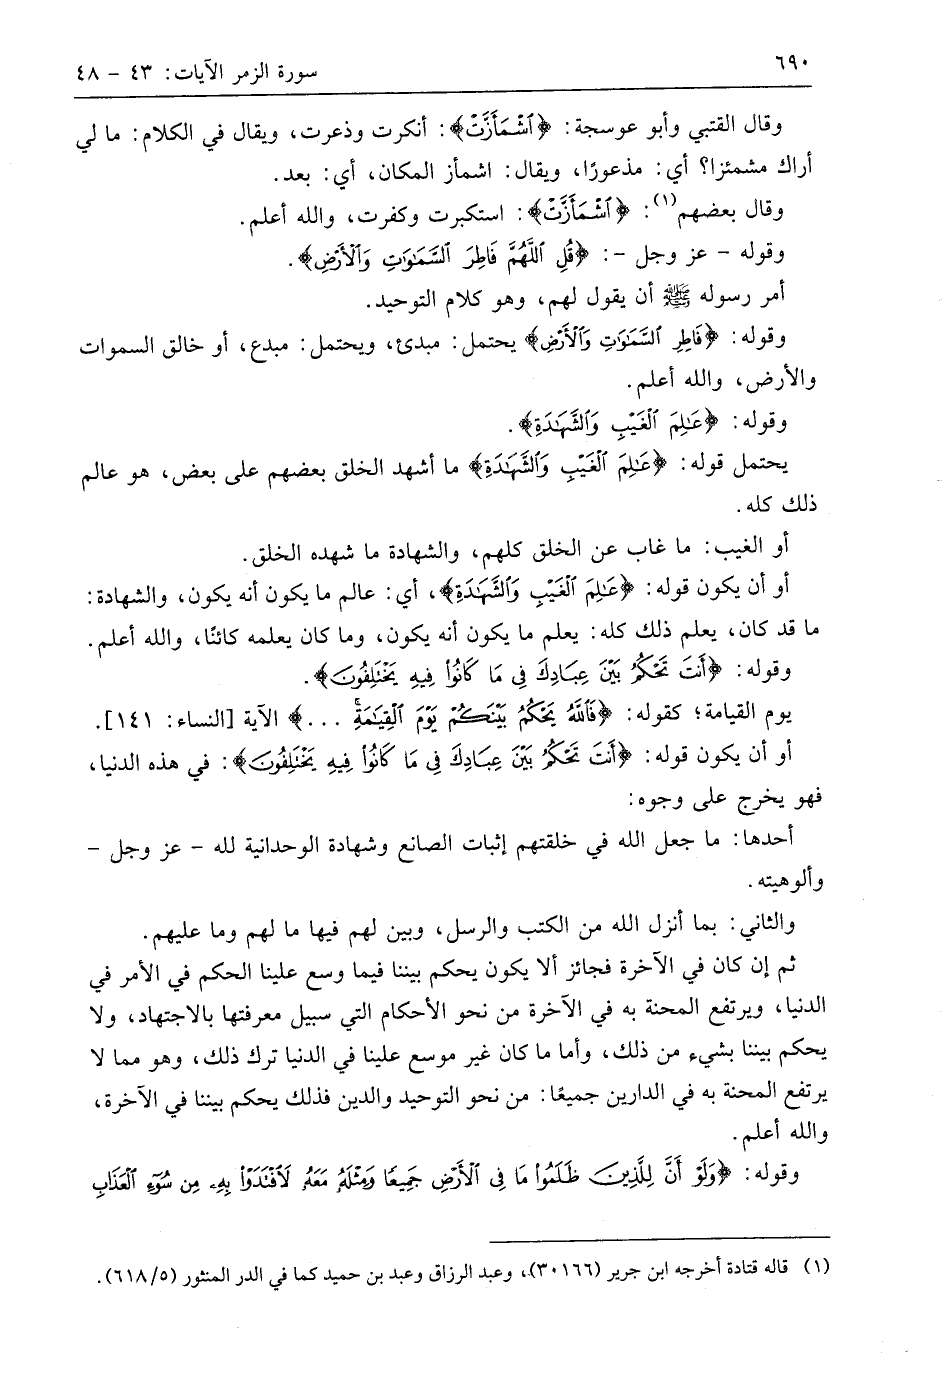 ٦٩٠
سورة الزمر الآيات: ٤٣ - ٤٨
وقال القتبي وأبو عوسجة: ﴿ٱشْمَأَزَّتْ﴾: أنكرت وذعرت، ويقال في الكلام: ما لي
أراك مشمئزا؟ أي: مذعورًا، ويقال: اشمأز المكان، أي: بعد.
وقال بعضهم(١): ﴿ٱشْمَأَزَّتْ﴾: استكبرت وكفرت، والله أعلم.
وقوله - عز وجل -: ﴿قُلِ ٱللَّهُمَّ فَاطِرَ ٱلسَّمَٰوَٰتِ وَٱلْأَرْضِ﴾.
أمر رسوله ﷺ أن يقول لهم، وهو كلام التوحيد.
وقوله: ﴿فَاطِرِ ٱلسَّمَٰوَٰتِ وَٱلْأَرْضِ﴾ يحتمل: مبدئ، ويحتمل: مبدع، أو خالق السموات
والأرض، والله أعلم.
وقوله: ﴿عَٰلِمَ ٱلْغَيْبِ وَٱلشَّهَٰدَةِ﴾.
يحتمل قوله: ﴿عَٰلِمَ ٱلْغَيْبِ وَٱلشَّهَٰدَةِ﴾ ما أشهد الخلق بعضهم على بعض، هو عالم
ذلك كله.
أو الغيب: ما غاب عن الخلق كلهم، والشهادة ما شهده الخلق.
أو أن يكون قوله: ﴿عَٰلِمَ ٱلْغَيْبِ وَٱلشَّهَٰدَةِ﴾، أي: عالم ما يكون أنه يكون، والشهادة:
ما قد كان، يعلم ذلك كله: يعلم ما يكون أنه يكون، وما كان يعلمه كائنًا، والله أعلم.
وقوله: ﴿أَنتَ تَحْكُمُ بَيْنَ عِبَادِكَ فِى مَا كَانُوا۟ فِيهِ يَخْتَلِفُونَ﴾.
يوم القيامة؛ كقوله: ﴿فَٱللَّهُ يَحْكُمُ بَيْنَكُمْ يَوْمَ ٱلْقِيَٰمَةِۚ ...﴾ الآية [النساء: ١٤١].
أو أن يكون قوله: ﴿أَنتَ تَحْكُمُ بَيْنَ عِبَادِكَ فِى مَا كَانُوا۟ فِيهِ يَخْتَلِفُونَ﴾: في هذه الدنيا،
فهو يخرج على وجوه:
أحدها: ما جعل الله في خلقتهم إثبات الصانع وشهادة الوحدانية لله - عز وجل -
وألوهيته.
والثاني: بما أنزل الله من الكتب والرسل، وبين لهم فيها ما لهم وما عليهم.
ثم إن كان في الآخرة فجائز ألا يكون يحكم بيننا فيما وسع علينا الحكم في الأمر في
الدنيا، ويرتفع المحنة به في الآخرة من نحو الأحكام التي سبيل معرفتها بالاجتهاد، ولا
يحكم بيننا بشيء من ذلك، وأما ما كان غير موسع علينا في الدنيا ترك ذلك، وهو مما لا
يرتفع المحنة به في الدارين جميعًا: من نحو التوحيد والدين فذلك يحكم بيننا في الآخرة،
والله أعلم.
وقوله: ﴿وَلَوْ أَنَّ لِلَّذِينَ ظَلَمُوا۟ مَا فِى ٱلْأَرْضِ جَمِيعًا وَمِثْلَهُۥ مَعَهُۥ لَٱفْتَدَوْا۟ بِهِۦ مِن سُوٓءِ ٱلْعَذَابِ
(١) قاله قتادة أخرجه ابن جرير (٣٠١٦٦)، وعبد الرزاق وعبد بن حميد كما في الدر المنثور (٦١٨/٥).